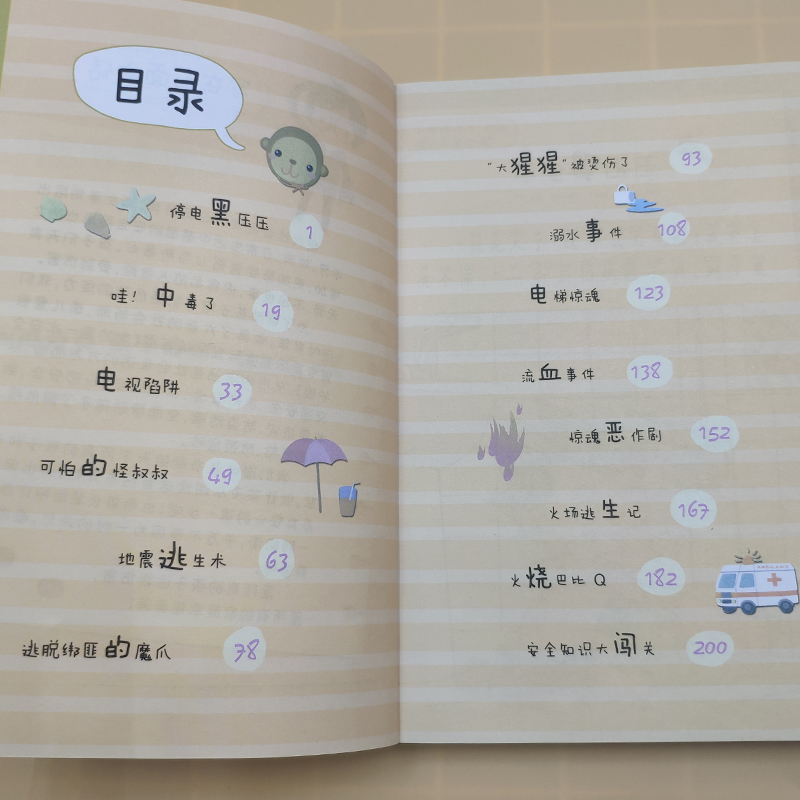 目录
停电黑压压 1
哇！中毒了 19
电视陷阱 33
可怕的怪叔叔 49
地震逃生术 63
逃脱绑匪的魔爪 78
“大猩猩”被烫伤了 93
溺水事件 108
电梯惊魂 123
流血事件 138
惊魂恶作剧 152
火场逃生记 167
火烧巴比Q 182
安全知识大闯关 200